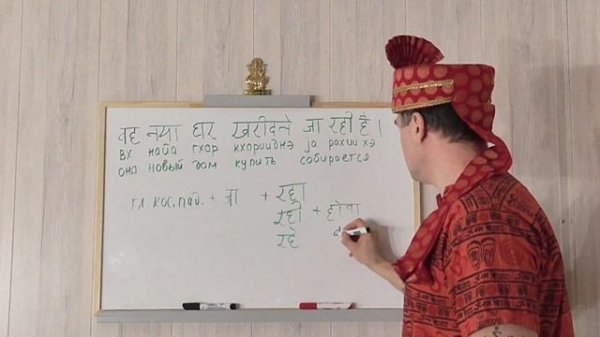 वह नया घर खरीदने जा रही है ।
вх найа гхар кхарииднэ ja рахии хэ
она новый дом купить собирается
гл. кос. пад. + जा + रहा
रही + होना
रहे